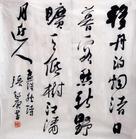 移舟泊烟渚日
暮客愁新野
旷天低树江清
月近人
孟浩然诗